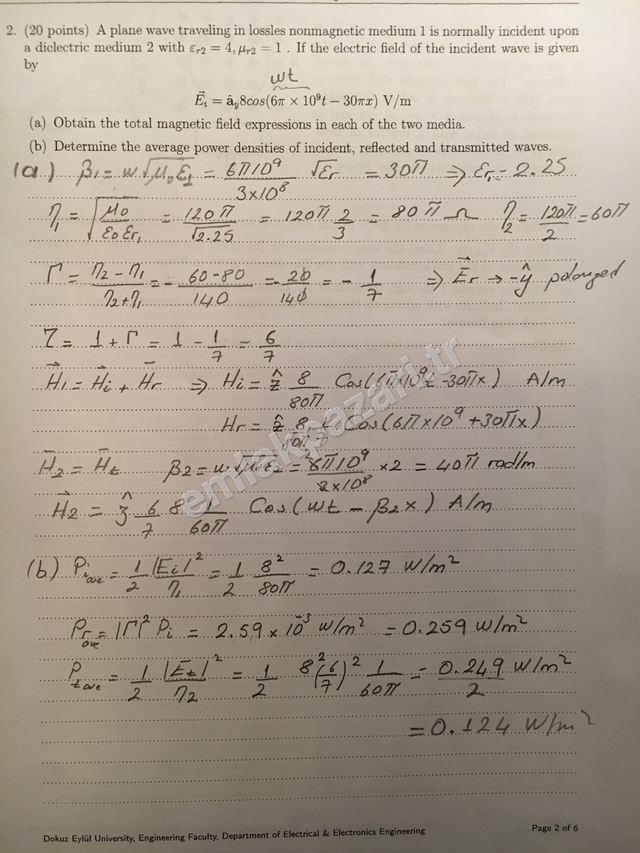 2. (20 points) A plane wave traveling in lossles nonmagnetic medium 1 is normally incident upon
a dielectric medium 2 with εr2 = 4, μr2 = 1 . If the electric field of the incident wave is given
by
wt
E⃗i = ây8cos(6π × 10⁹t − 30πx) V/m
(a) Obtain the total magnetic field expressions in each of the two media.
(b) Determine the average power densities of incident, reflected and transmitted waves.
(a) β1 = w√μ0ε1 = 6π10⁹/3x10⁸ √εr = 30π ⇒ εr1 = 2.25
η1 = √μ0/ε0εr1 = 120π/√2.25 = 120π 2/3 = 80π Ω η2 = 120π/2 = 60π
Γ = η2 − η1/η2 + η1 = 60-80/140 = -20/140 = - 1/7 ⇒ E⃗r → -ŷ
τ = 1 + Γ = 1 - 1/7 = 6/7
H⃗1 = H⃗i + H⃗r ⇒ Hi = ẑ 8/80π Cos(6πx10⁹t -30πx) A/m
Hr = ẑ 8 Cos(6πx10⁹ +30πx)
H⃗2 = H⃗t β2 = w√μ0ε2 = 6π10⁹/3x10⁸ x2 = 40π rad/m
H⃗2 = ẑ 6/7 8 1/60π Cos(wt − β2x) A/m
(b) Piave = 1/2 |Ei|²/η1 = 1/2 8²/80π = 0.127 W/m²
Prave = |Γ|² Pi = 2.59 x 10⁻³ W/m² = 0.259 W/m²
Ptave = 1/2 |Et|²/η2 = 1/2 8²(6/7)² 1/60π = 0.249/2 W/m²
= 0.124 W/m²
emlakpazari.tr
Dokuz Eylül University, Engineering Faculty, Department of Electrical & Electronics Engineering
Page 2 of 6